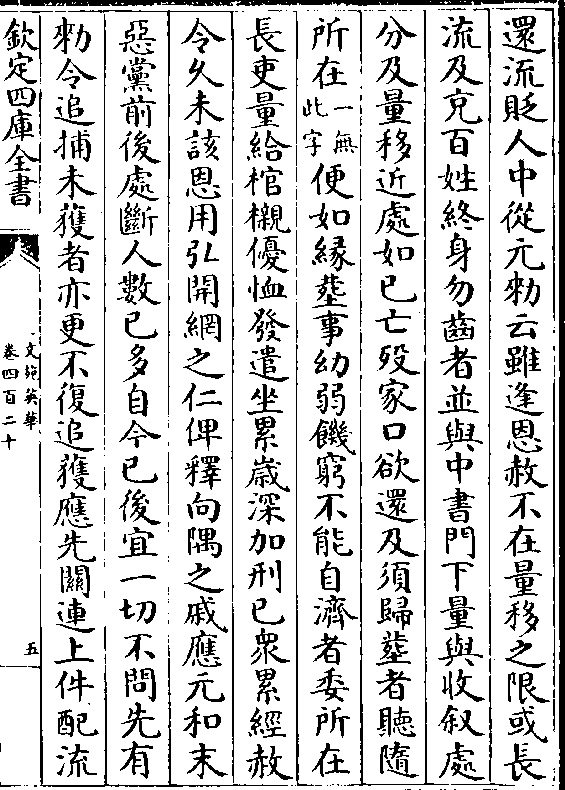 還流貶人中從元勑云雖逢恩赦不在量移之限或長
流及充百姓終身勿齒者並與中書門下量與收叙處
分及量移近處如已亡歿家口欲還及須歸塟者聽隨
所在一無此字便如緣塟事幼弱饑窮不能自濟者委所在
長吏量給棺櫬優恤發遣坐累嵗深加刑已衆累經赦
令久未該恩用弘開網之仁俾釋向隅之戚應元和末
惡黨前後處斷人數已多自今已後宜一切不問先有
勑令追捕未獲者亦更不復追獲應先關連上件配流
欽定四庫全書
文苑英華
卷四百二十
五